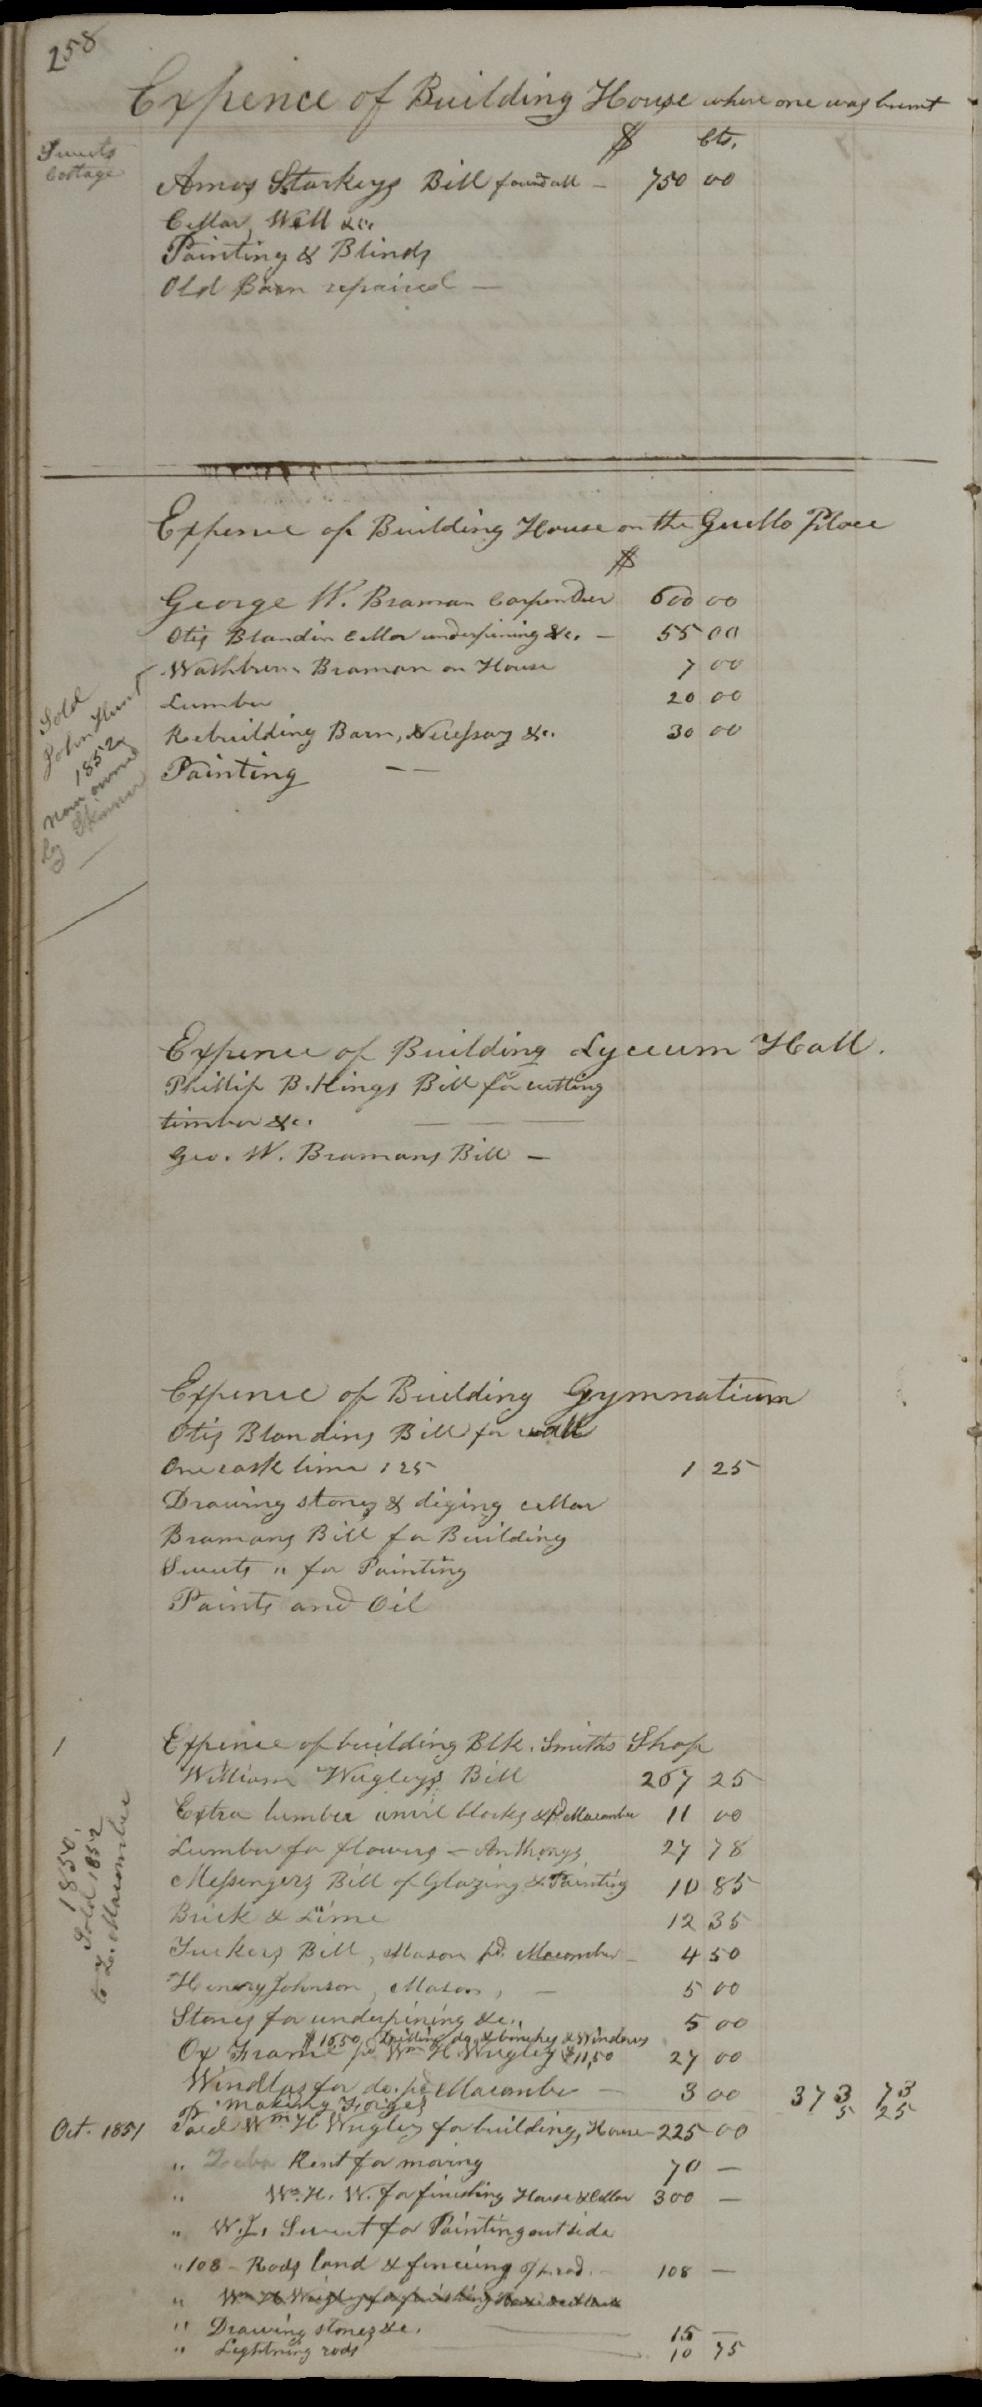 258
Expence of Building House where one was burnt
$ Cts.
Sweets
Cottage
Amos Starkeys Bill found all — 750 00
Cellar, Well &c.
Painting & Blinds
Old Barn repaired —
Expence of Building House on the Place
$
George W. Braman Carpender 600 00
Otis Blandin Cellar underpining &c. — 55 00
Washburn Braman on House 7 00
Lumber 20 00
Rebuilding Barn, Necessary &c. 30 00
Painting — —
Sold
John Hunt
1852
now owned
by Skinner
Expence of Building Lyceum Hall.
Phillip B. Kings Bill for cutting
timber &c. — — —
Geo. W. Bramans Bill —
Expence of Building Gymnatium
Otis Blandins Bill for wall
One cask lime 1 25 1 25
Drawing stones & diging cellar
Bramans Bill for Building
Sweets " for Painting
Paints and Oil
1
1850.
Sold 1852
to L. Macomber
Expence of building Blk. Smiths Shop
William Wrigleys Bill 267 25
Extra lumber anvil blocks &c pd Macomber 11 00
Lumber for flowers — Anthonys 27 78
Messengers Bill of Glazing & Painting 10 85
Brick & Lime 12 35
Tuckers Bill, Mason pd. Macomber — 4 50
Henery Johnson, Mason, — 5 00
Stones for underpining &c., 5 00
$ do & benches & Windows
Ox Frame pd Wm H Wrigley $11,50 27 00
Windlas for do. pd Macomber — 3 00 373 73
of making Forges 5 25
Oct. 1851 Paid Wm H Wrigley for building, House 225 00
" Rent for moving 70 —
" Wm. H. W. for finishing House & Cellar 300 —
" W. L. Sweet for Painting outside
" 108 — Rods land & fencing of rod. — 108 —
" Wm H Wrigley for finishing House
" Drawing stones &c. 15 —
" Lightning rods 10 75